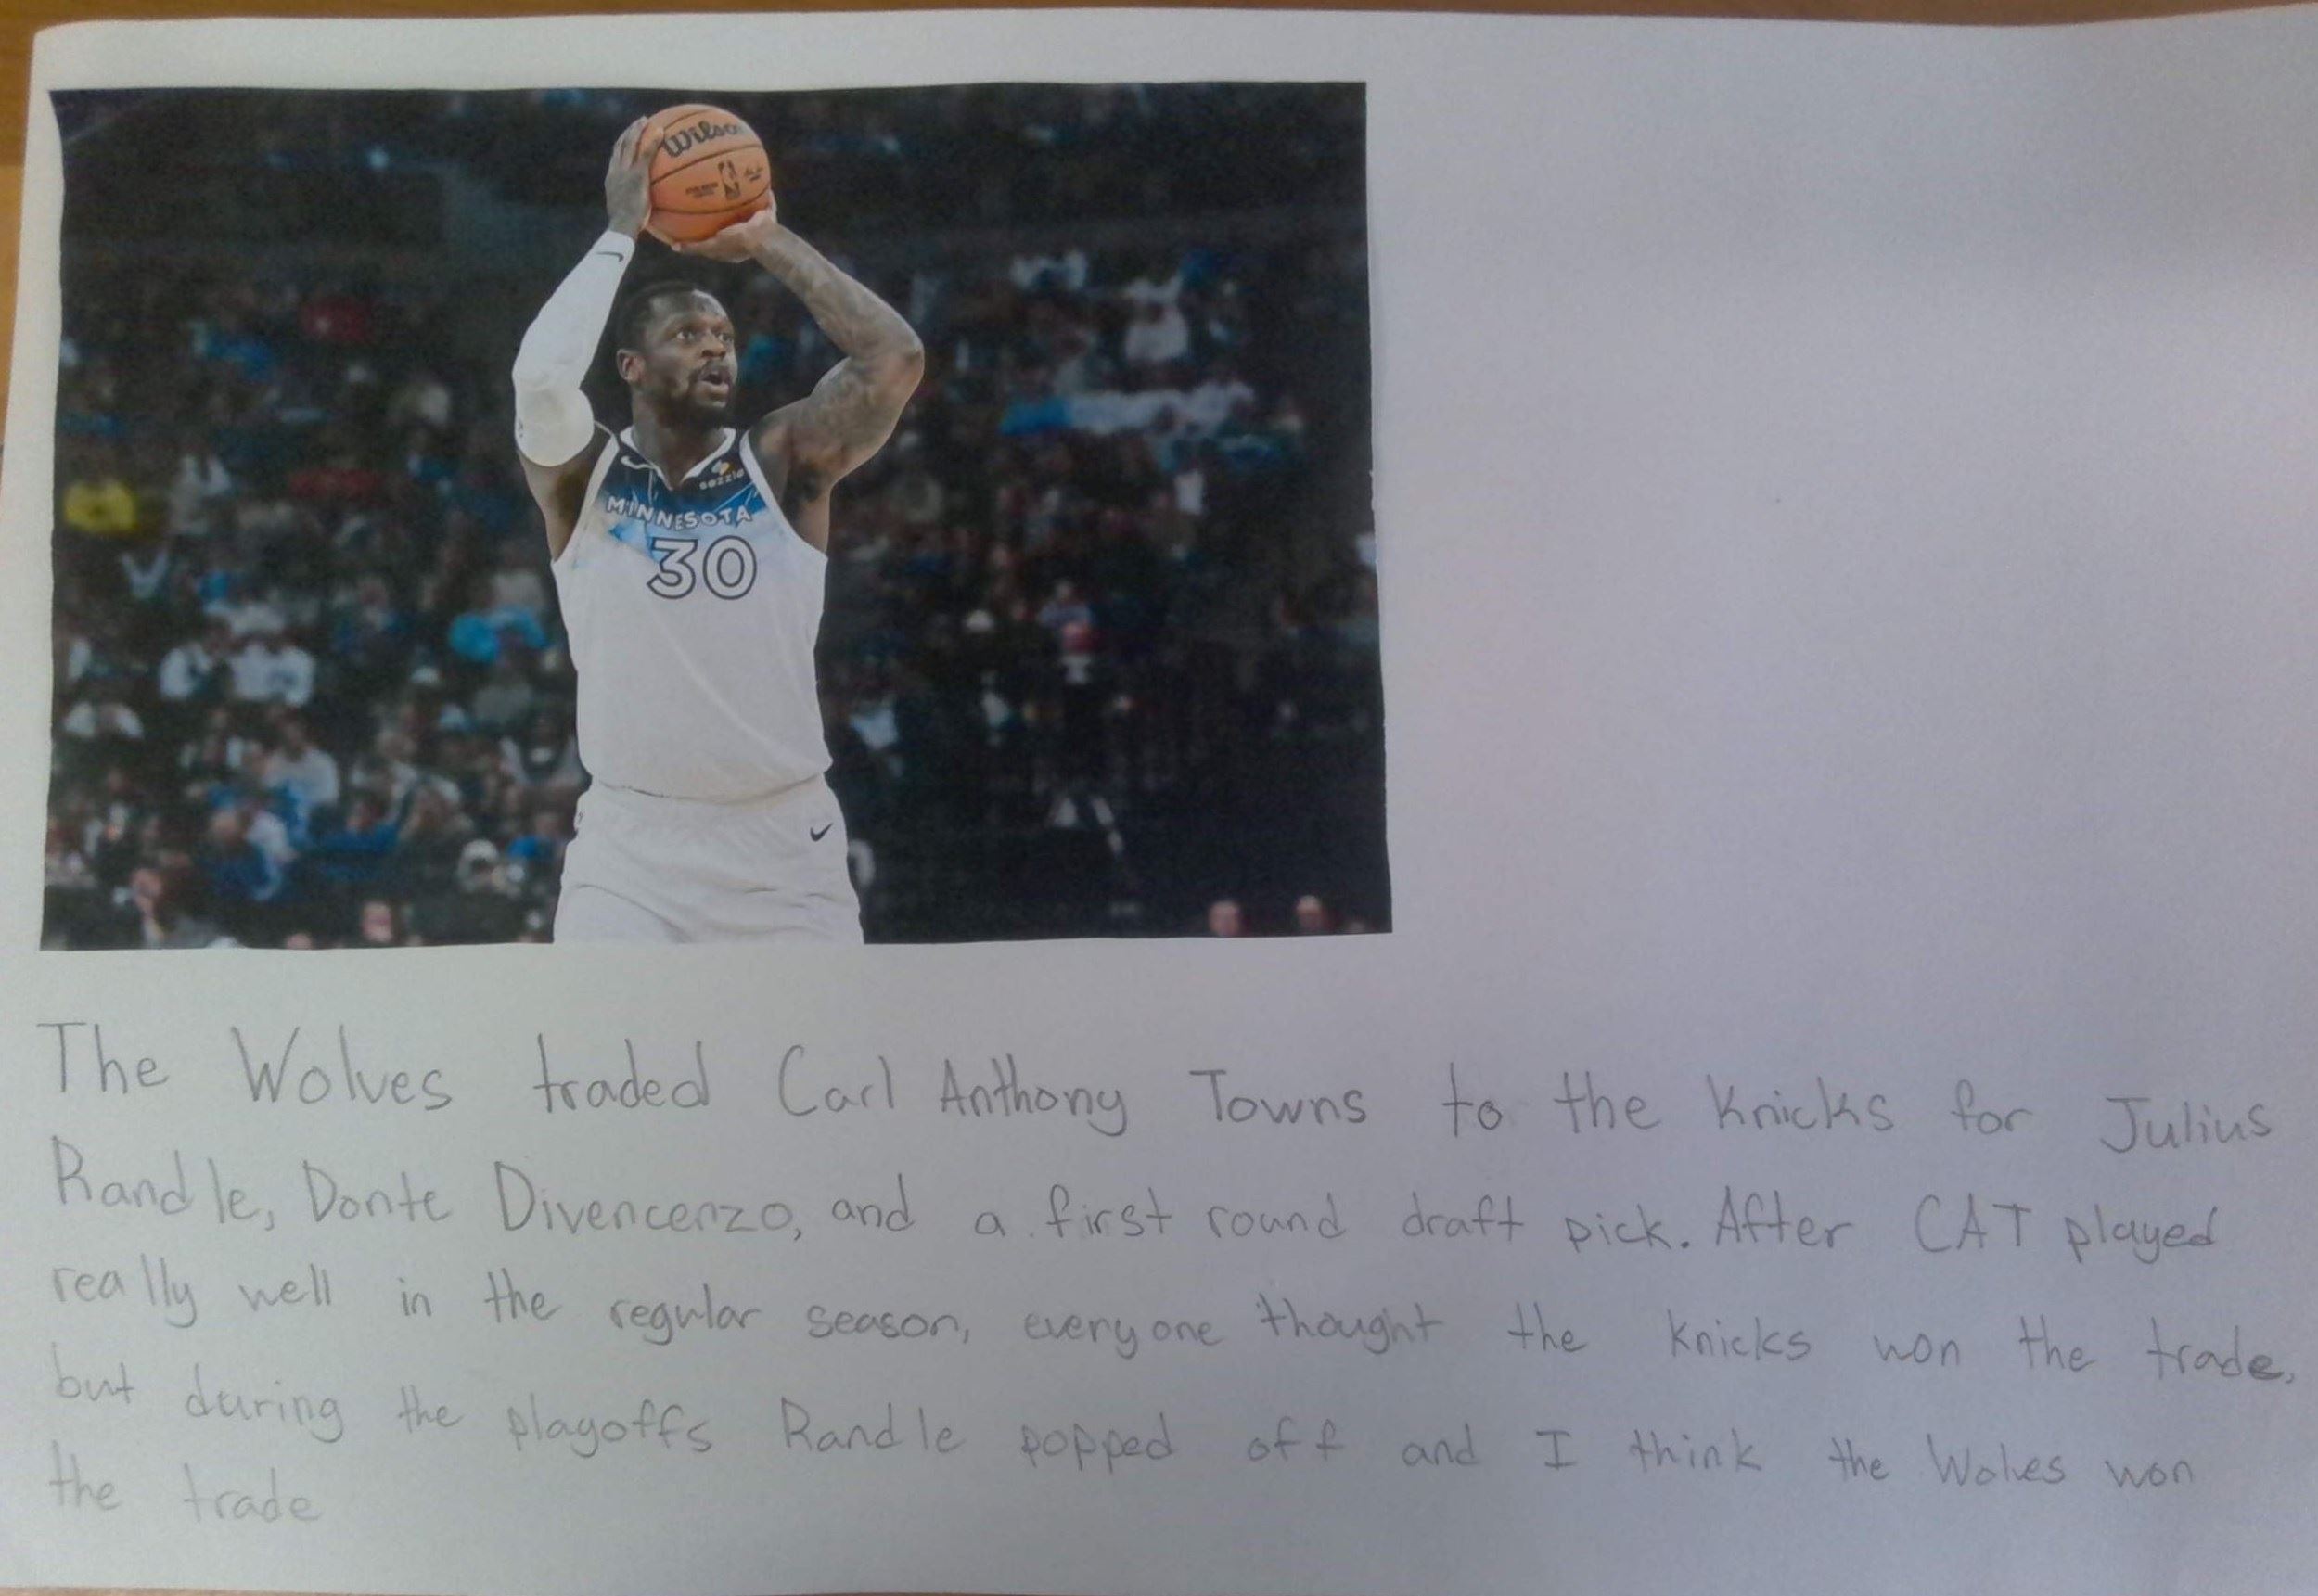 Wilson
sezzle
MINNESOTA
30
The Wolves traded Carl Anthony Towns to the Knicks for Julius
Randle, Donte Divencenzo, and a first round draft pick. After CAT played
really well in the regular season, everyone thought the Knicks won the trade,
but during the playoffs Randle popped off and I think the Wolves won
the trade